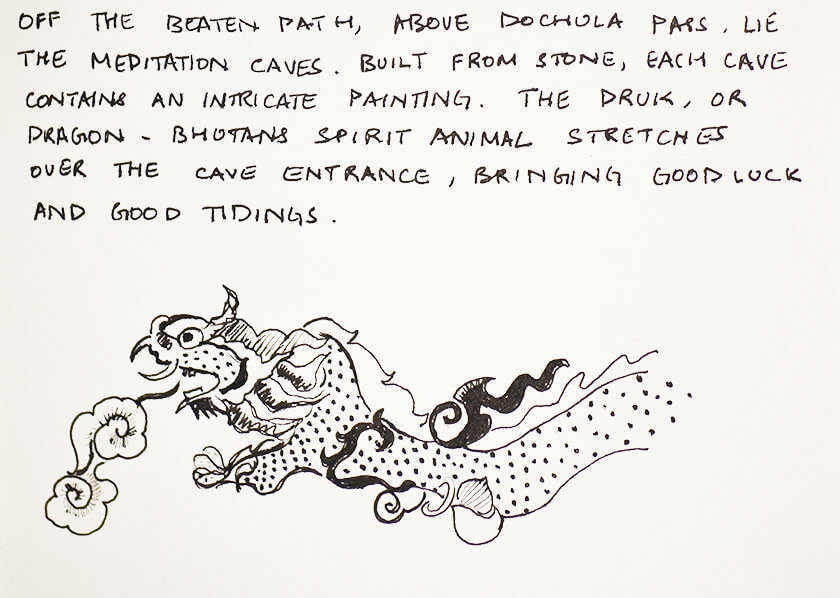 OFF THE BEATEN PATH, ABOVE DOCHULA PASS. LIE
THE MEDITATION CAVES. BUILT FROM STONE, EACH CAVE
CONTAINS AN INTRICATE PAINTING. THE DRUK, OR
DRAGON - BHUTANS SPIRIT ANIMAL STRETCHES
OVER THE CAVE ENTRANCE, BRINGING GOODLUCK
AND GOOD TIDINGS.